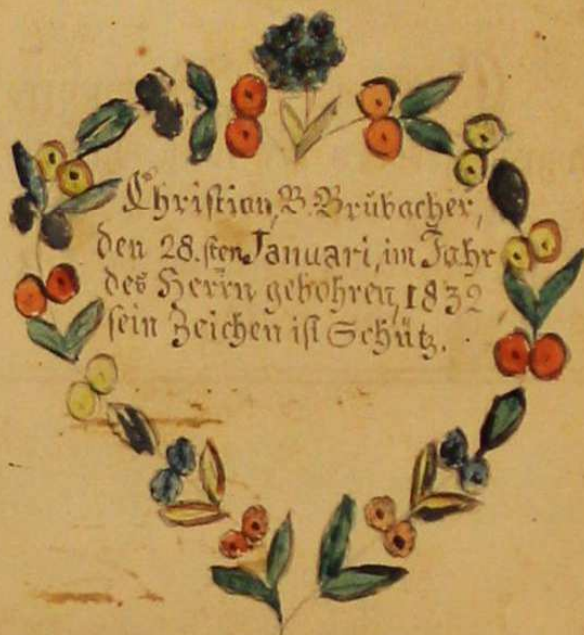 Christian, B. Brübacher,
den 28.sten Januari, im Jahr
des Herrn gebohren, 1832
sein Zeichen ist Schütz.